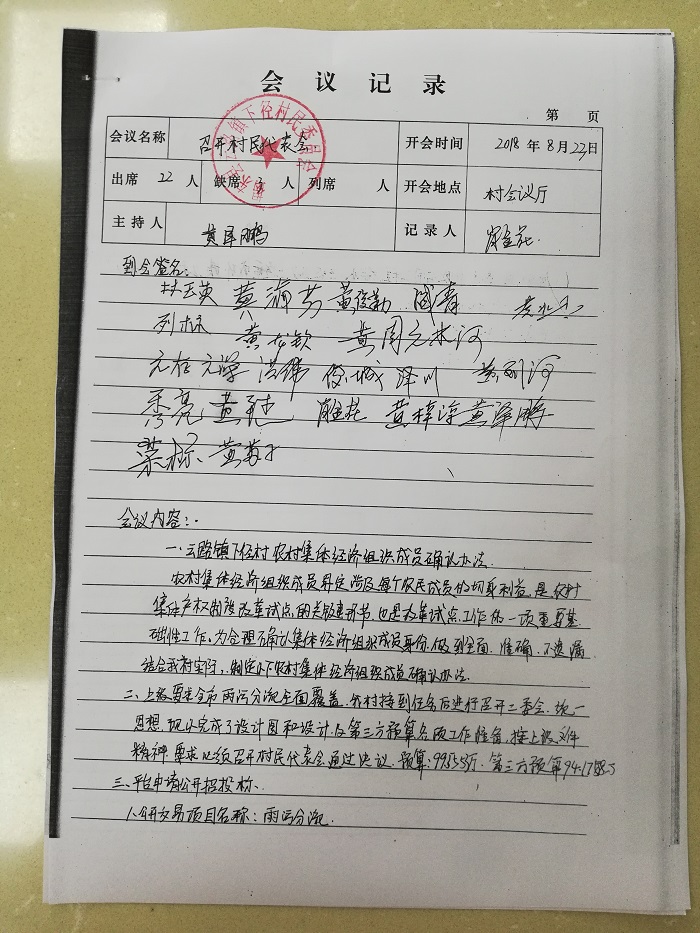 会议记录
第 页
会议名称 召开村民代表会 开会时间 2018年8月23日
镇下径村民委员会
出席 22 人 缺席 3 人 列席 人 开会地点 村会议厅
主持人 黄泽鹏 记录人
到会签名:
黄
列标 黄龙钦 黄周元木河
元在 元学 洪伟 俊城 泽川
秀亮 黄 黄梓淳 黄泽鹏
荣标、黄
会议内容:
一、云路镇下径村农村集体经济组织成员确认办法.
农村集体经济组织成员界定涉及每个农民成员的切身利益,是农村
集体产权制度改革试点的关键环节,也是改革试点工作的一项重要基
础性工作,为合理确认集体经济组织成员身份,做到全面、准确、不遗漏
结合我村实际,制定以下农村集体经济组织成员确认办法.
二、上级要求全市雨污分流全面覆盖,我村接到任务后进行召开二委会,统一
思想,现以完成了设计图和设计及第三方预算各项工作准备,按上级文件
精神,要求必须召开村民代表会通过决议.预算:99.555万.第三方预算941788.5
三、平台申请公开招投标.
1.公开交易项目名称:雨污分流.